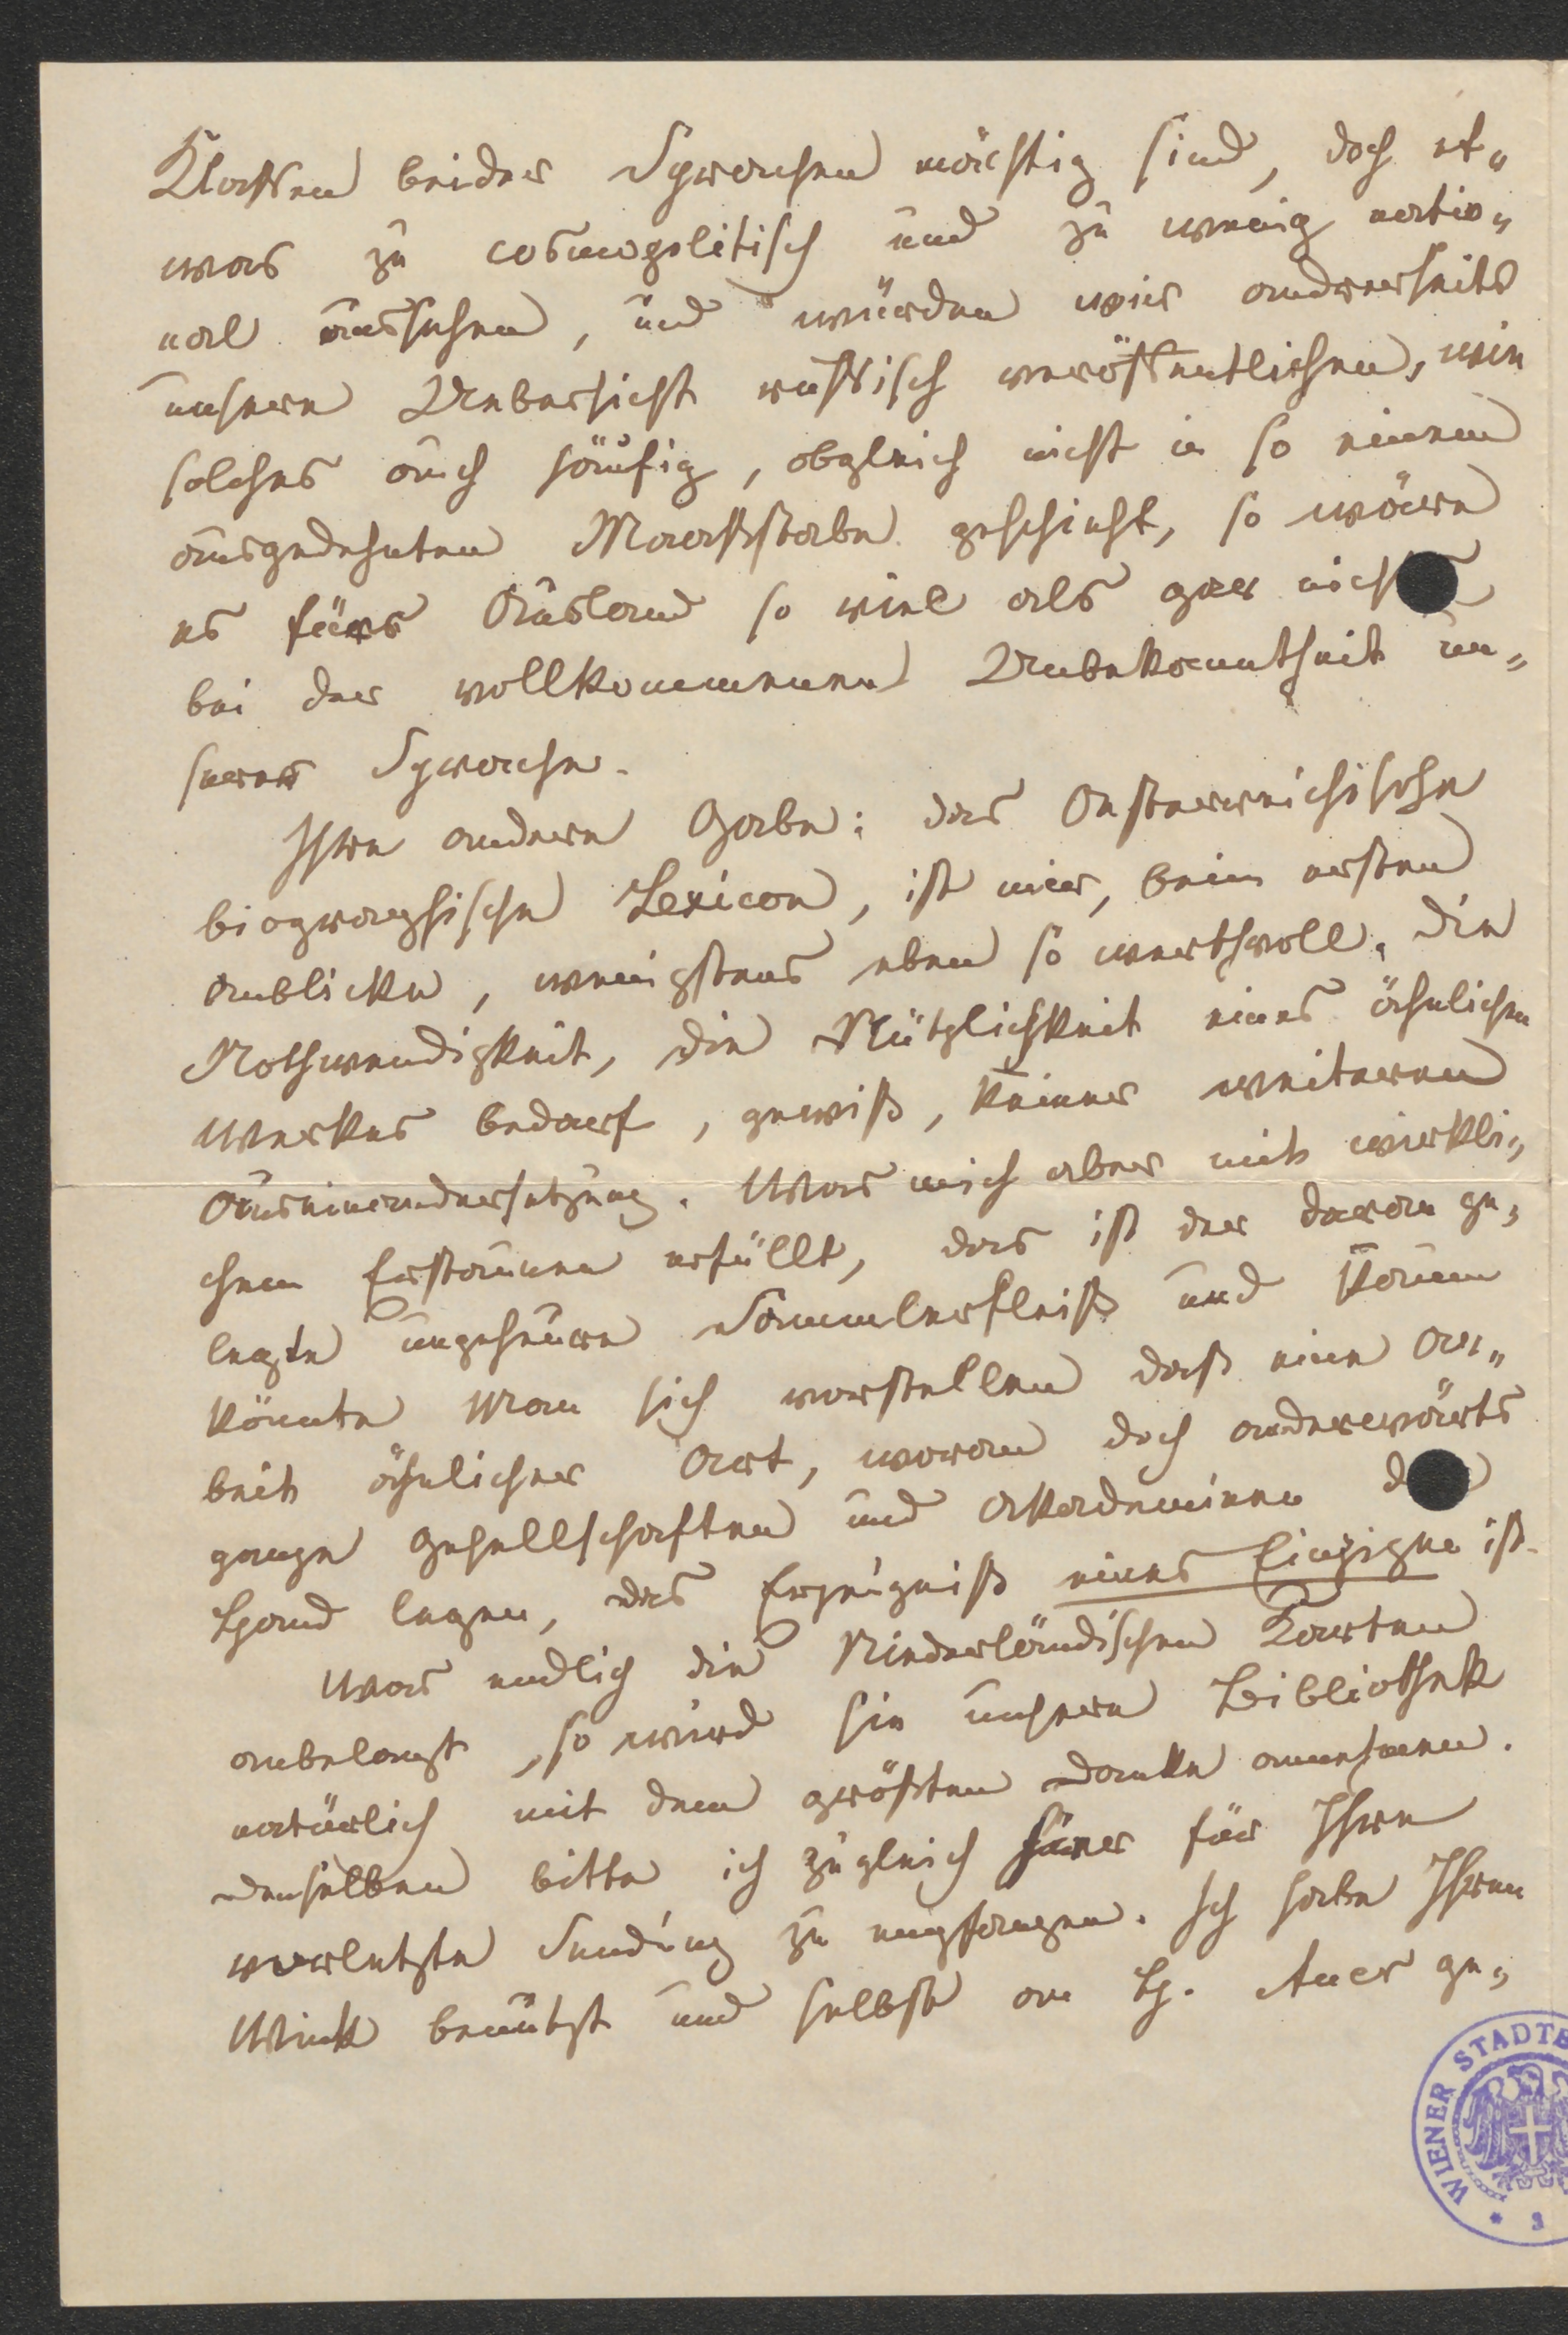 Klassen beider Sprachen mächtig sind, doch et„
was zu cosmopolitisch und zu wenig natio„
nal aussehen, und würden wir anderseits
unsere Uebersicht russisch veröffentlichen, wie
solches auch häufig, obgleich nicht in so einem
ausgedehnten Maasstabe geschieht, so wäre
es fürs Ausland so viel als gar nichts
bei der vollkommenen Unbekanntheit un„
serer Sprache.
Ihre andere Gabe: das Oesterreichische
biographische Lexicon, ist mir, beim ersten
Anblicke, wenigstens eben so werthvoll. Die
Nothwendigkeit, die Nützlichkeit eines ähnlichen
Werkes bedarf, gewiß, keiner weiteren
Auseinandersetzung. Was mich aber mit wirkli„
chem Erstaunen erfüllt, das ist der daran ge„
legte ungeheure Sammlerfleiß und kaum
könnte man sich vorstellen daß eine Ar„
beit ähnlicher Art, woran doch anderwärts
ganze Gesellschaften und Akademieen die
Hand legen, das Erzeugniß eines Einzigen ist.
Was endlich die Niederländischen Karten
anbelangt, so wird sie unsere Bibliothek
natürlich mit dem größten Danke annehmen.
Denselben bitte ich zugleich für Ihre
vorletzte Sendung zu empfangen. Ich habe Ihren
Wink benützt und selbst an H. Auer ge„
WIENER STADTB
* 3